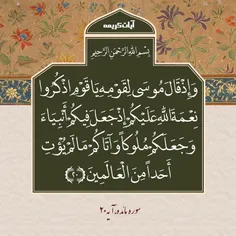 آیات کریمه
بِسْمِ اللهِ الرَّحْمٰنِ الرَّحِيمِ
وَإِذْ قَالَ مُوسَى لِقَوْمِهِ يَا قَوْمِ اذْكُرُوا
نِعْمَةَ اللهِ عَلَيْكُمْ إِذْ جَعَلَ فِيكُمْ أَنْبِيَاءَ
وَجَعَلَكُمْ مُلُوكًا وَآتَاكُمْ مَا لَمْ يُؤْتِ
أَحَدًا مِنَ الْعَالَمِينَ ﴿۲۰﴾
سوره مائده، آیه ۲۰